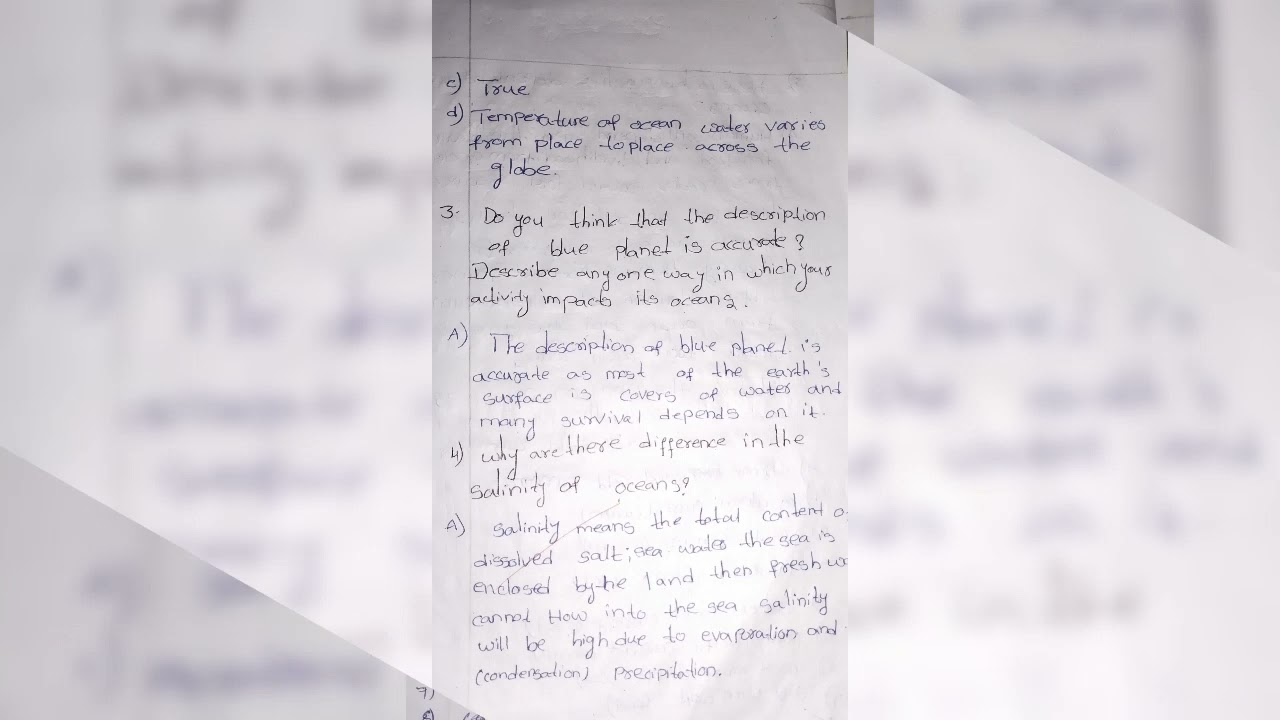 c) True
d) Temperature of ocean water varies
from place to place across the
globe.
3. Do you think that the description
of blue planet is accurate?
Describe any one way in which your
activity impacts its oceans.
A) The description of blue planet is
accurate as most of the earth's
surface is covers of water and
many survival depends on it.
4) why are there difference in the
salinity of oceans?
A) salinity means the total content
dissolved salt; sea water the sea is
enclosed by the land then fresh
cannot flow into the sea salinity
will be high due to evaporation and
(condensation) Precipitation.
7)